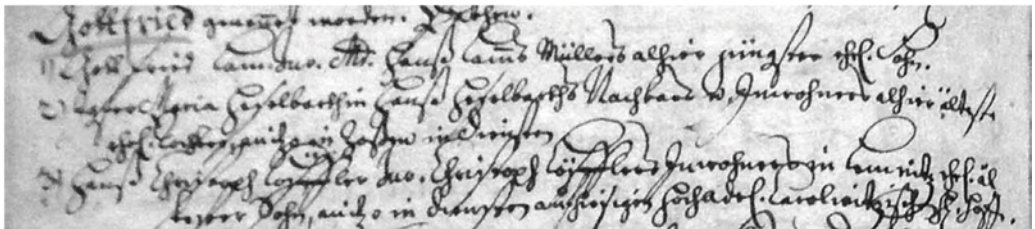 Gottfried genennet worden. Pathen.
1) Gottfried Lamm, juv. Mr. Hanß Lamms Müllers alhier jüngster ehel. Sohn.
2) Jgfr. Maria Heselbarthin Hanß Heselbarths Nachbars u. Inwohners alhier älteste
ehel. Tochter, in Diensten
3) Hanß Christoph Löffler juv. Christoph Löfflers Inwohners in Lemnitz ehel. äl
tester Sohn, anitzo in diensten auf hiesigen Hochadel. Carolwitzischen Hoff.